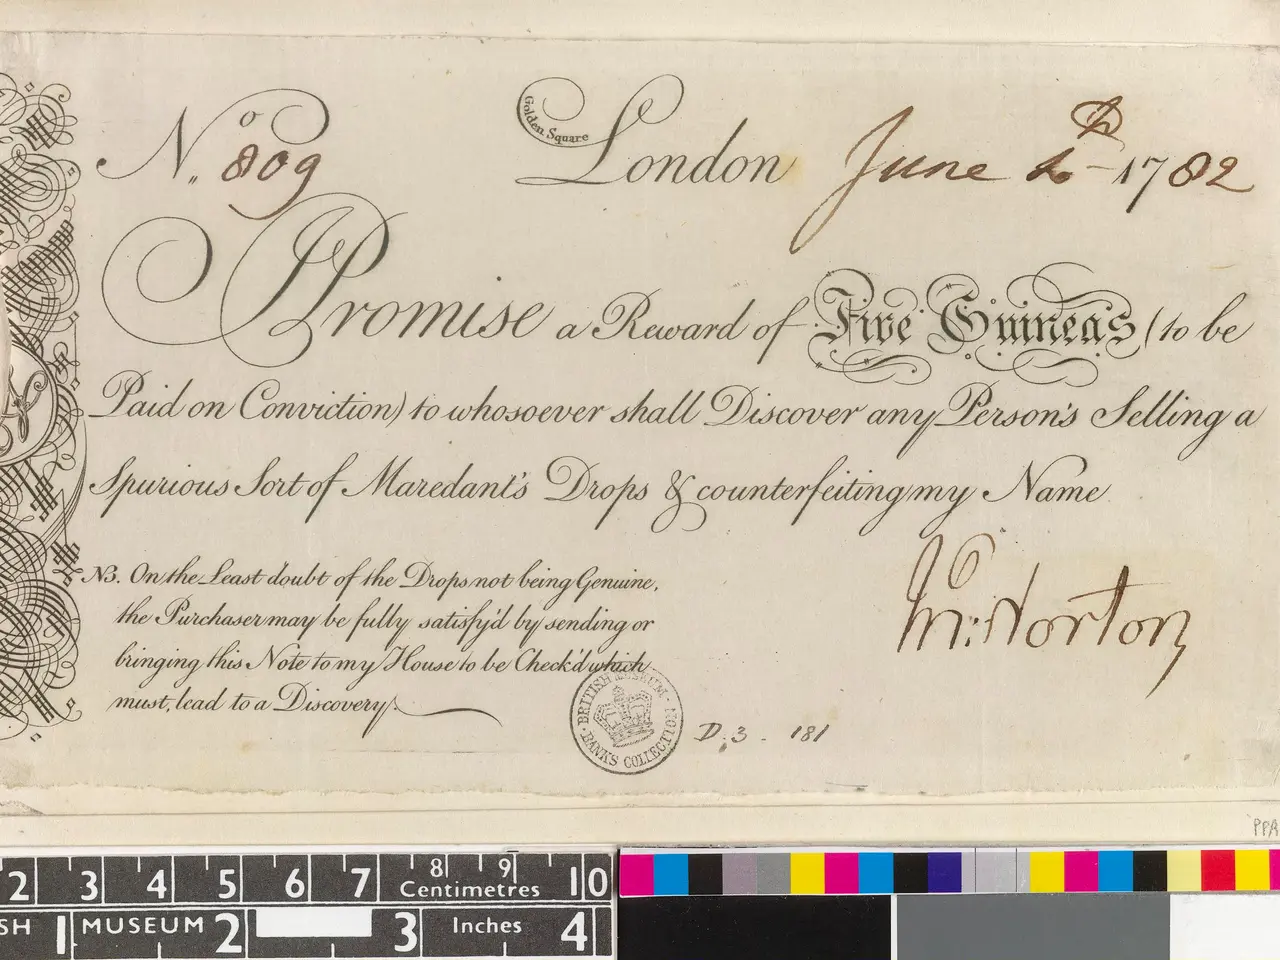 Golden Square
No. 809 London June 1782
I Promise a Reward of Five Guineas (to be
Paid on Conviction) to whosoever shall Discover any Person's Selling a
Spurious Sort of Maredant's Drops & counterfeiting my Name
Jn: Norton
NB. On the Least doubt of the Drops not being Genuine,
the Purchaser may be fully satisfy'd by sending or
bringing this Note to my House to be Check'd which
must, lead to a Discovery
BRITISH MUSEUM
BANKS COLLECTION
D, 3 - 181
PPA
2 3 4 5 6 7 8 9 10
Centimetres
SH 1 MUSEUM 2 3 Inches 4